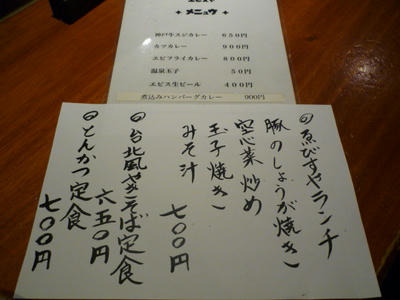 エビスヤ
メニュウ
神戸牛スジカレー 650円
カツカレー 900円
エビフライカレー 800円
温泉玉子 50円
エビス生ビール 400円
煮込みハンバーグカレー 900円
ゑびすやランチ
豚のしょうが焼き
空心菜炒め
玉子焼き
みそ汁 七〇〇円
台北風やきそば定食
六五〇円
とんかつ定食
七〇〇円